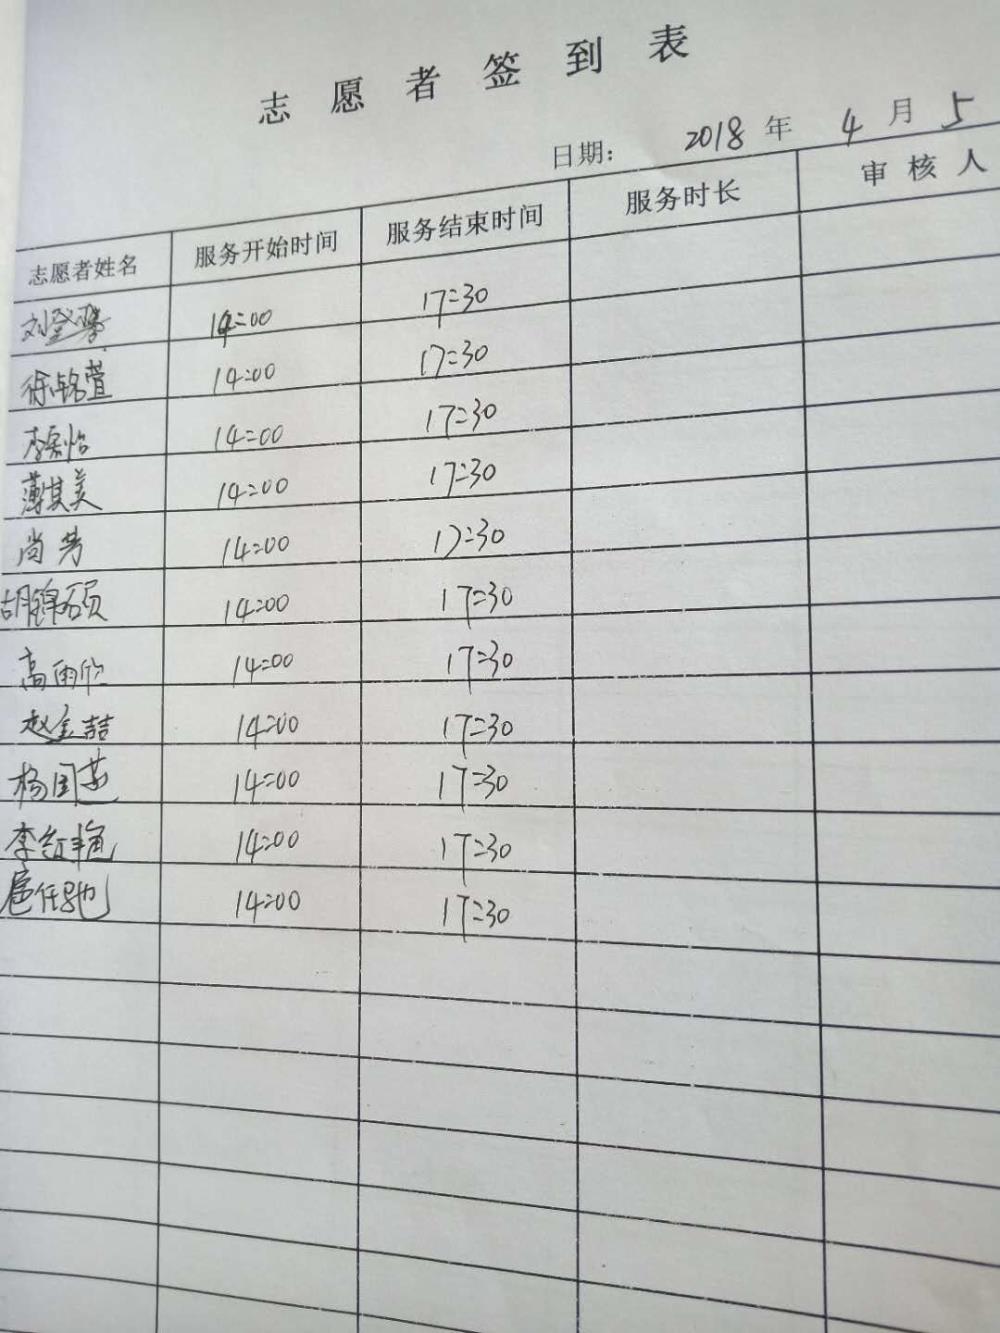 志愿者签到表
日期: 2018 年 4 月 5
志愿者姓名 服务开始时间 服务结束时间 服务时长 审核人
刘登攀 14:00 17:30
徐铭萱 14:00 17:30
李君怡 14:00 17:30
薄其美 14:00 17:30
尚芳 14:00 17:30
胡锦硕 14:00 17:30
高雨欣 14:00 17:30
赵金喆 14:00 17:30
杨国 14:00 17:30
李红艳 14:00 17:30
扈任驰 14:00 17:30